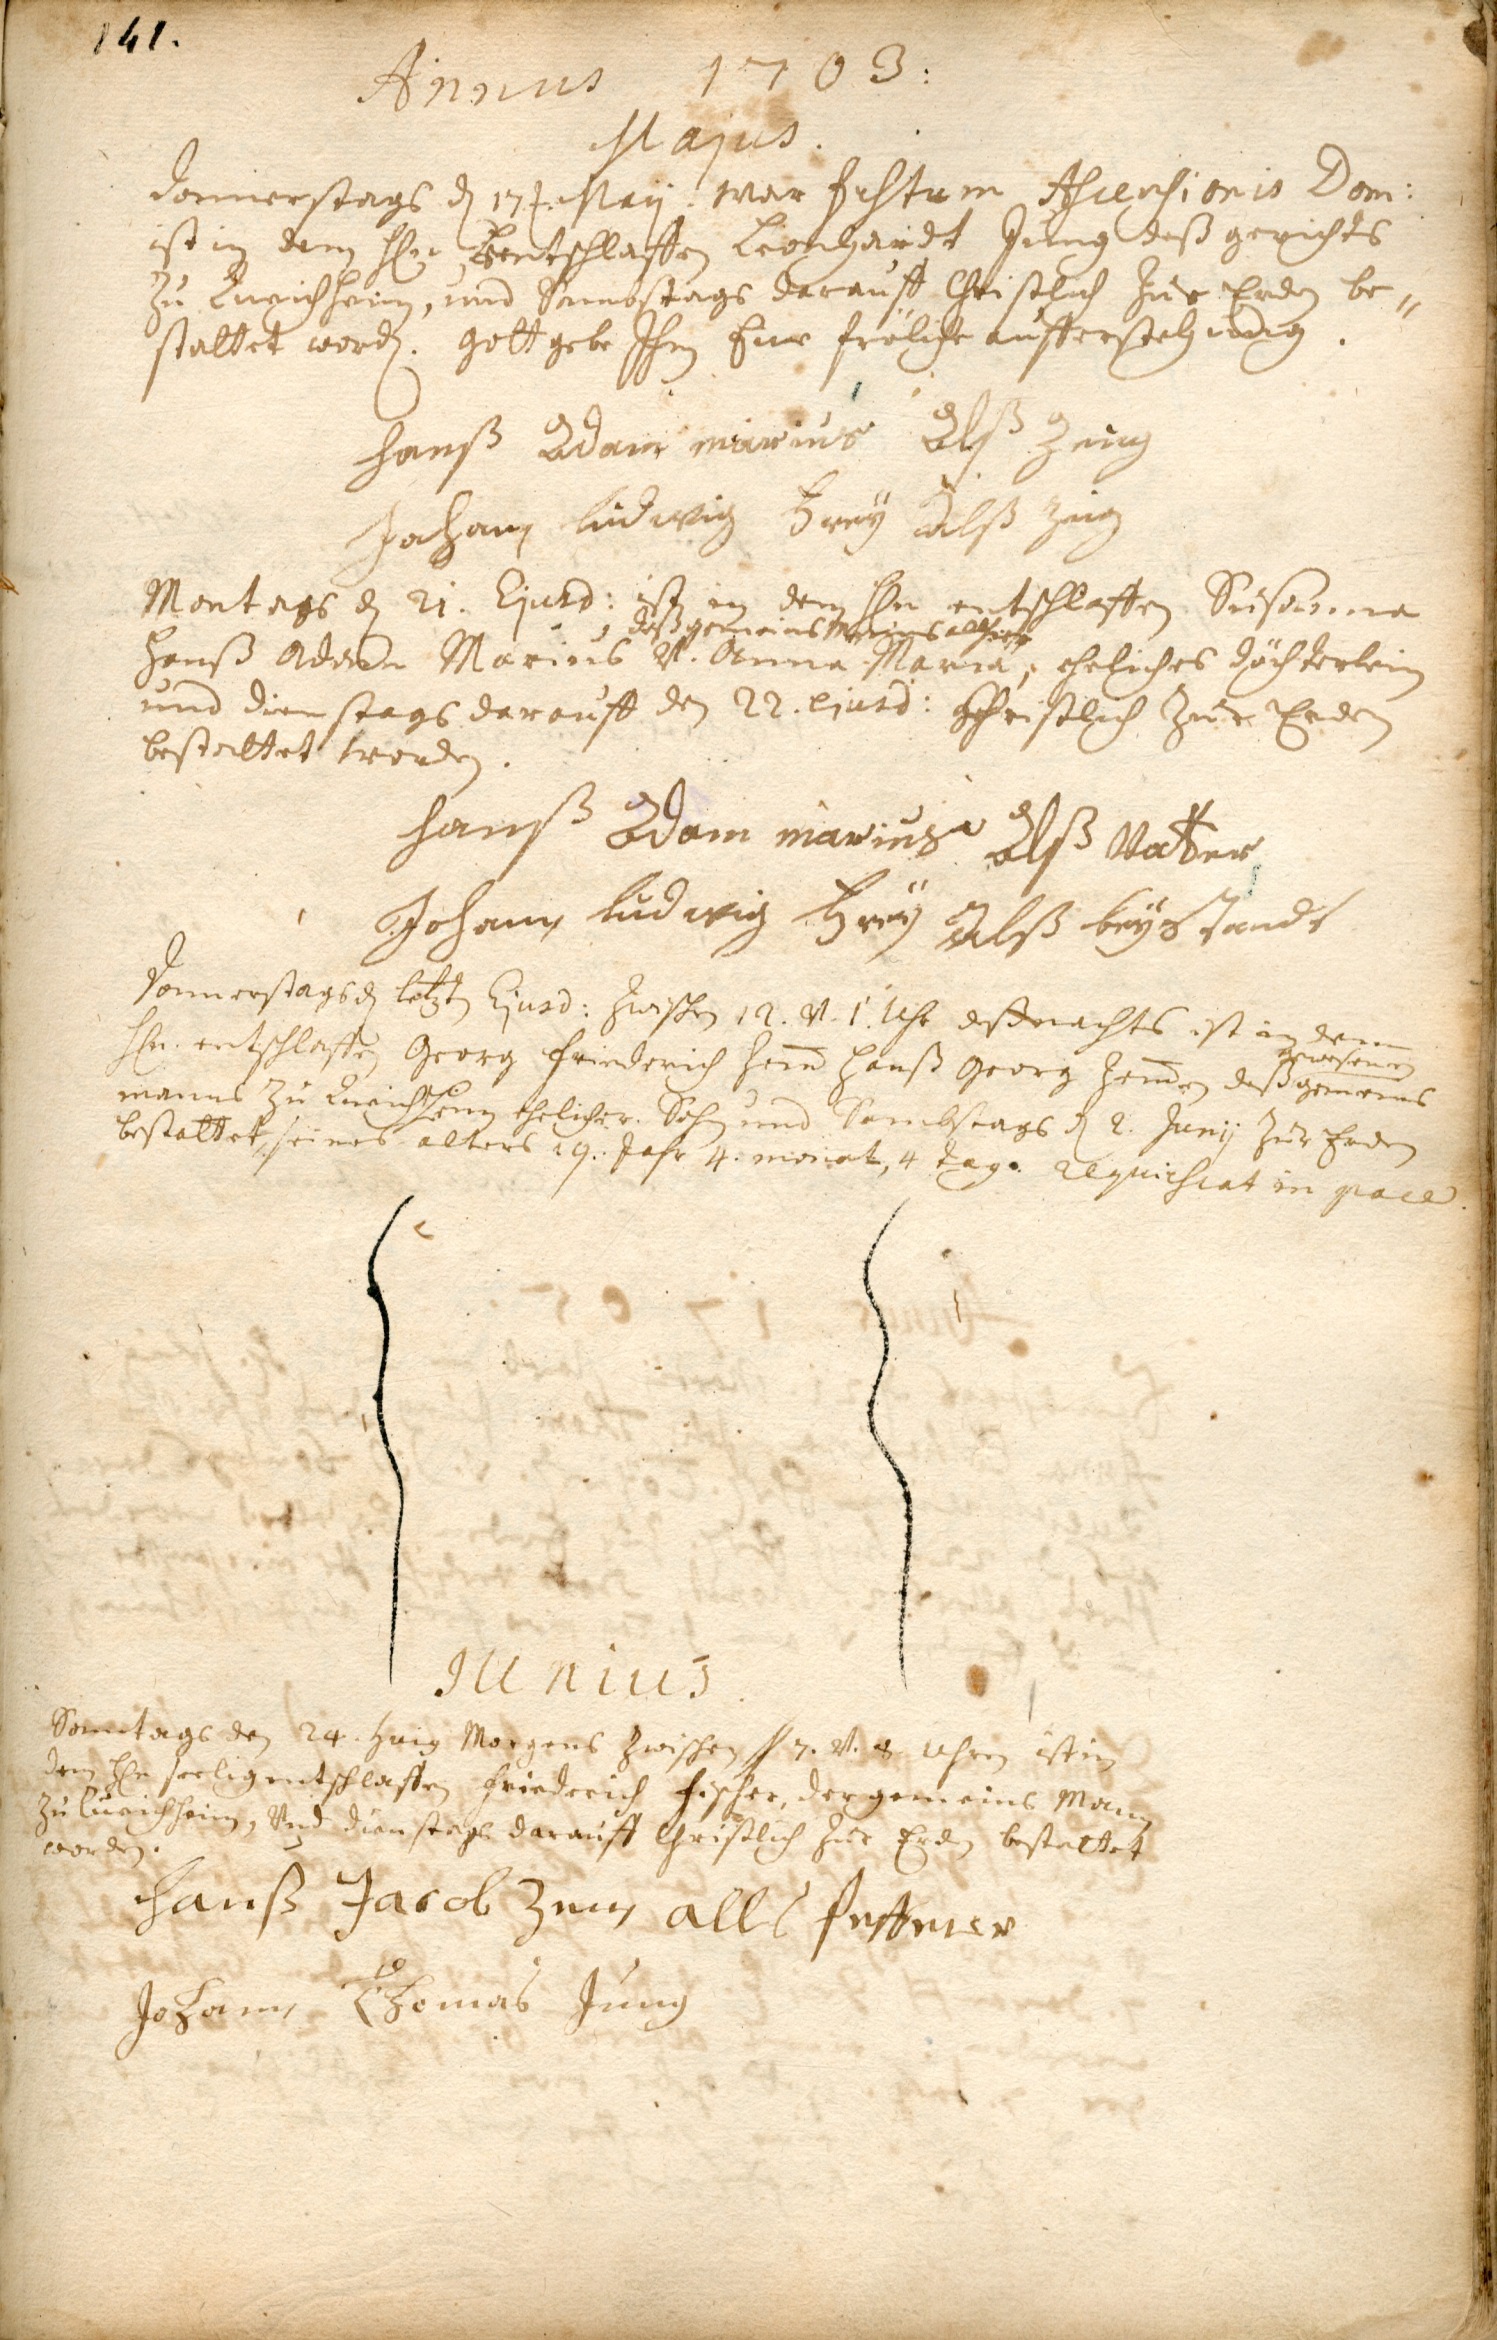 141.
Annus 1703:
Majus.
Donnerstags d 17t. Maij. war festum Ascensionis Dom:
ist in dem Hn entschlaffen Leonhardt Jung deß gerichts
zu Queichheim, und Sambstags darauff Christlich zur Erden be„
stattet word. Gott gebe Ihm Eine fröliche aufferstehung.
Hanß Adam marius Alß Zeug
Johann ludwig Frey Alß Zeug
Montags d 21. Ejusd: ist in dem Hn entschlaffen Susanna
deß gemeins Manns allhier
Hanß Adam Marius V. Anna Maria, eheliches döchterlein
und dienstags darauff den 22. ejusd: Christlich zur Erden
bestattet worden.
Hanß Adam marius Alß Vatter
Johann ludwig Frey Alß beystandt
Donnerstags d letzten Ejusd: zwischen 12. V. 1. Uhr deß nachts ist in dem
Hn. entschlaffen Georg Friederich Hanß Georg deß gemeins
gewesenen
manns zu Queichheim ehelicher Sohn und Sambstags d 2. Junij zur Erden
bestattet, seines alters 19. Jahr 4. monat, 4 tag. Requiescat in pace.
Junius.
Sonntags den 24. hujus Morgens zwischen 7. V. 8 Uhren ist in
dem Hn seelig entschlaffen Friederich Fischer, der gemeins Mann
zu Queichheim, Und dienstags darauff Christlich zur Erden bestattet
worden.
Hanß Jacob alls
Johann Thomas Jung